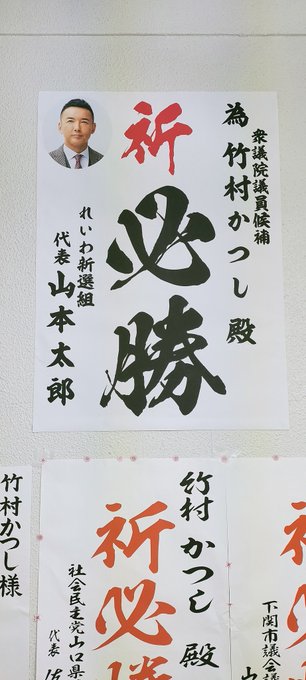 衆議院議員候補
為 竹村かつし 殿
祈
必勝
れいわ新選組
代表 山本太郎
下関市議会議
竹村 かつし 殿
祈必
社会民主党山口県
代表
竹村かつし様